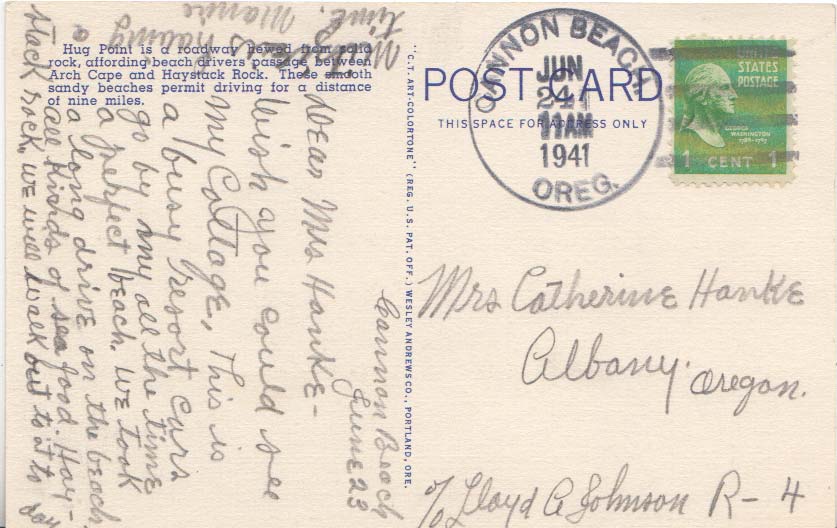 Hug Point is a roadway hewed from solid
rock, affording beach drivers passage between
Arch Cape and Haystack Rock. These smooth
sandy beaches permit driving for a distance
of nine miles.
"C.T. ART-COLORTONE" (REG. U.S. PAT. OFF.) WESLEY ANDREWS CO., PORTLAND, ORE.
POST CARD
THIS SPACE FOR ADDRESS ONLY
CANNON BEACH
JUN
24
11 AM
1941
OREG.
UNITED
STATES
POSTAGE
GEORGE
WASHINGTON
1789-1797
1 CENT 1
Cannon Beach
June 23
Dear Mrs Hanke-
Wish you could see
my cottage, This is
a busy resort cars
go by my all the time
a perfect beach. We took
a long drive on the beach.
all kinds of sea food. Hay-
stack rock, we will walk out to it to day
a
having
Mamie
time.
Mrs Catherine Hanke
Albany.
Oregon.
c/o Lloyd A Johnson R-4